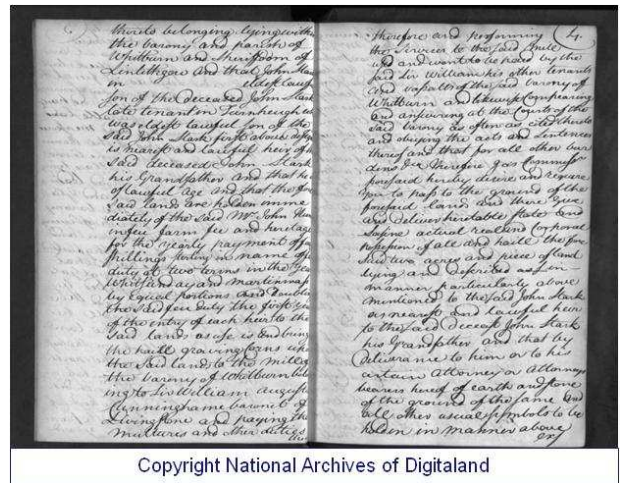 thereto belonging lying within
the barony and parish of
Whitburn and Sherifdom of
Linlithgow and that John Stark
in eldest lawful
son of the deceased John Stark
late tenant in
was eldest lawful son of the
said John Stark first above
is nearest and lawful heir of the
said deceased John Stark
his Grandfather and that he is
of lawful age and that the fore
said lands are holden imme
diately of the said Mr. John
in feu farm fee and heritage
for the yearly payment of
shillings sterling in name of feu
duty at two terms in the year
Whitsunday and Martinmas
by equal portions and Doubling
the said feu duty the first year
of the entry of each heir to the
said lands as use is and bring
the haill growing corns upon
the said land to the milln of
the barony of Whitburn belong
ing to Sir William August
Cunninghame baronet of
Livingstone and paying the
multures and other duties
4.
therefore and performing
the services to the said milln
used and wont to be paid by the
said Sir William his other tenants
and vassals of the said barony of
Whitburn and likewise Compearing
and answering at the Courts of the
said barony as often as cited thereto
and obeying the acts and sentences
thereof and that for all other bur
dens &ca Therefore I as Commissr
foresaid hereby desire and require
you to pass to the ground of the
foresaid land and there give
and deliver heritable state and
sasine actual real and Corporal
possession of all and haille the fore
said two acres and piece of land
lying and described as in
manner particularly above
mentioned to the said John Stark
as nearest and lawful heir
to the said Deceast John Stark
his Grandfather and that by
deliverance to him or to his
certain attorney or attorneys
bearers hereof of earth and stone
of the ground of the same and
all other usual symbols to be
holden in manner above
Copyright National Archives of Digitaland